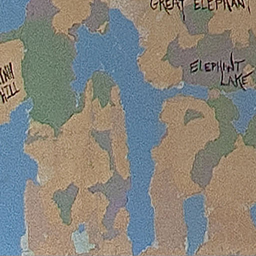 GREAT ELEPHANT
ELEPHANT
LAKE
HILL